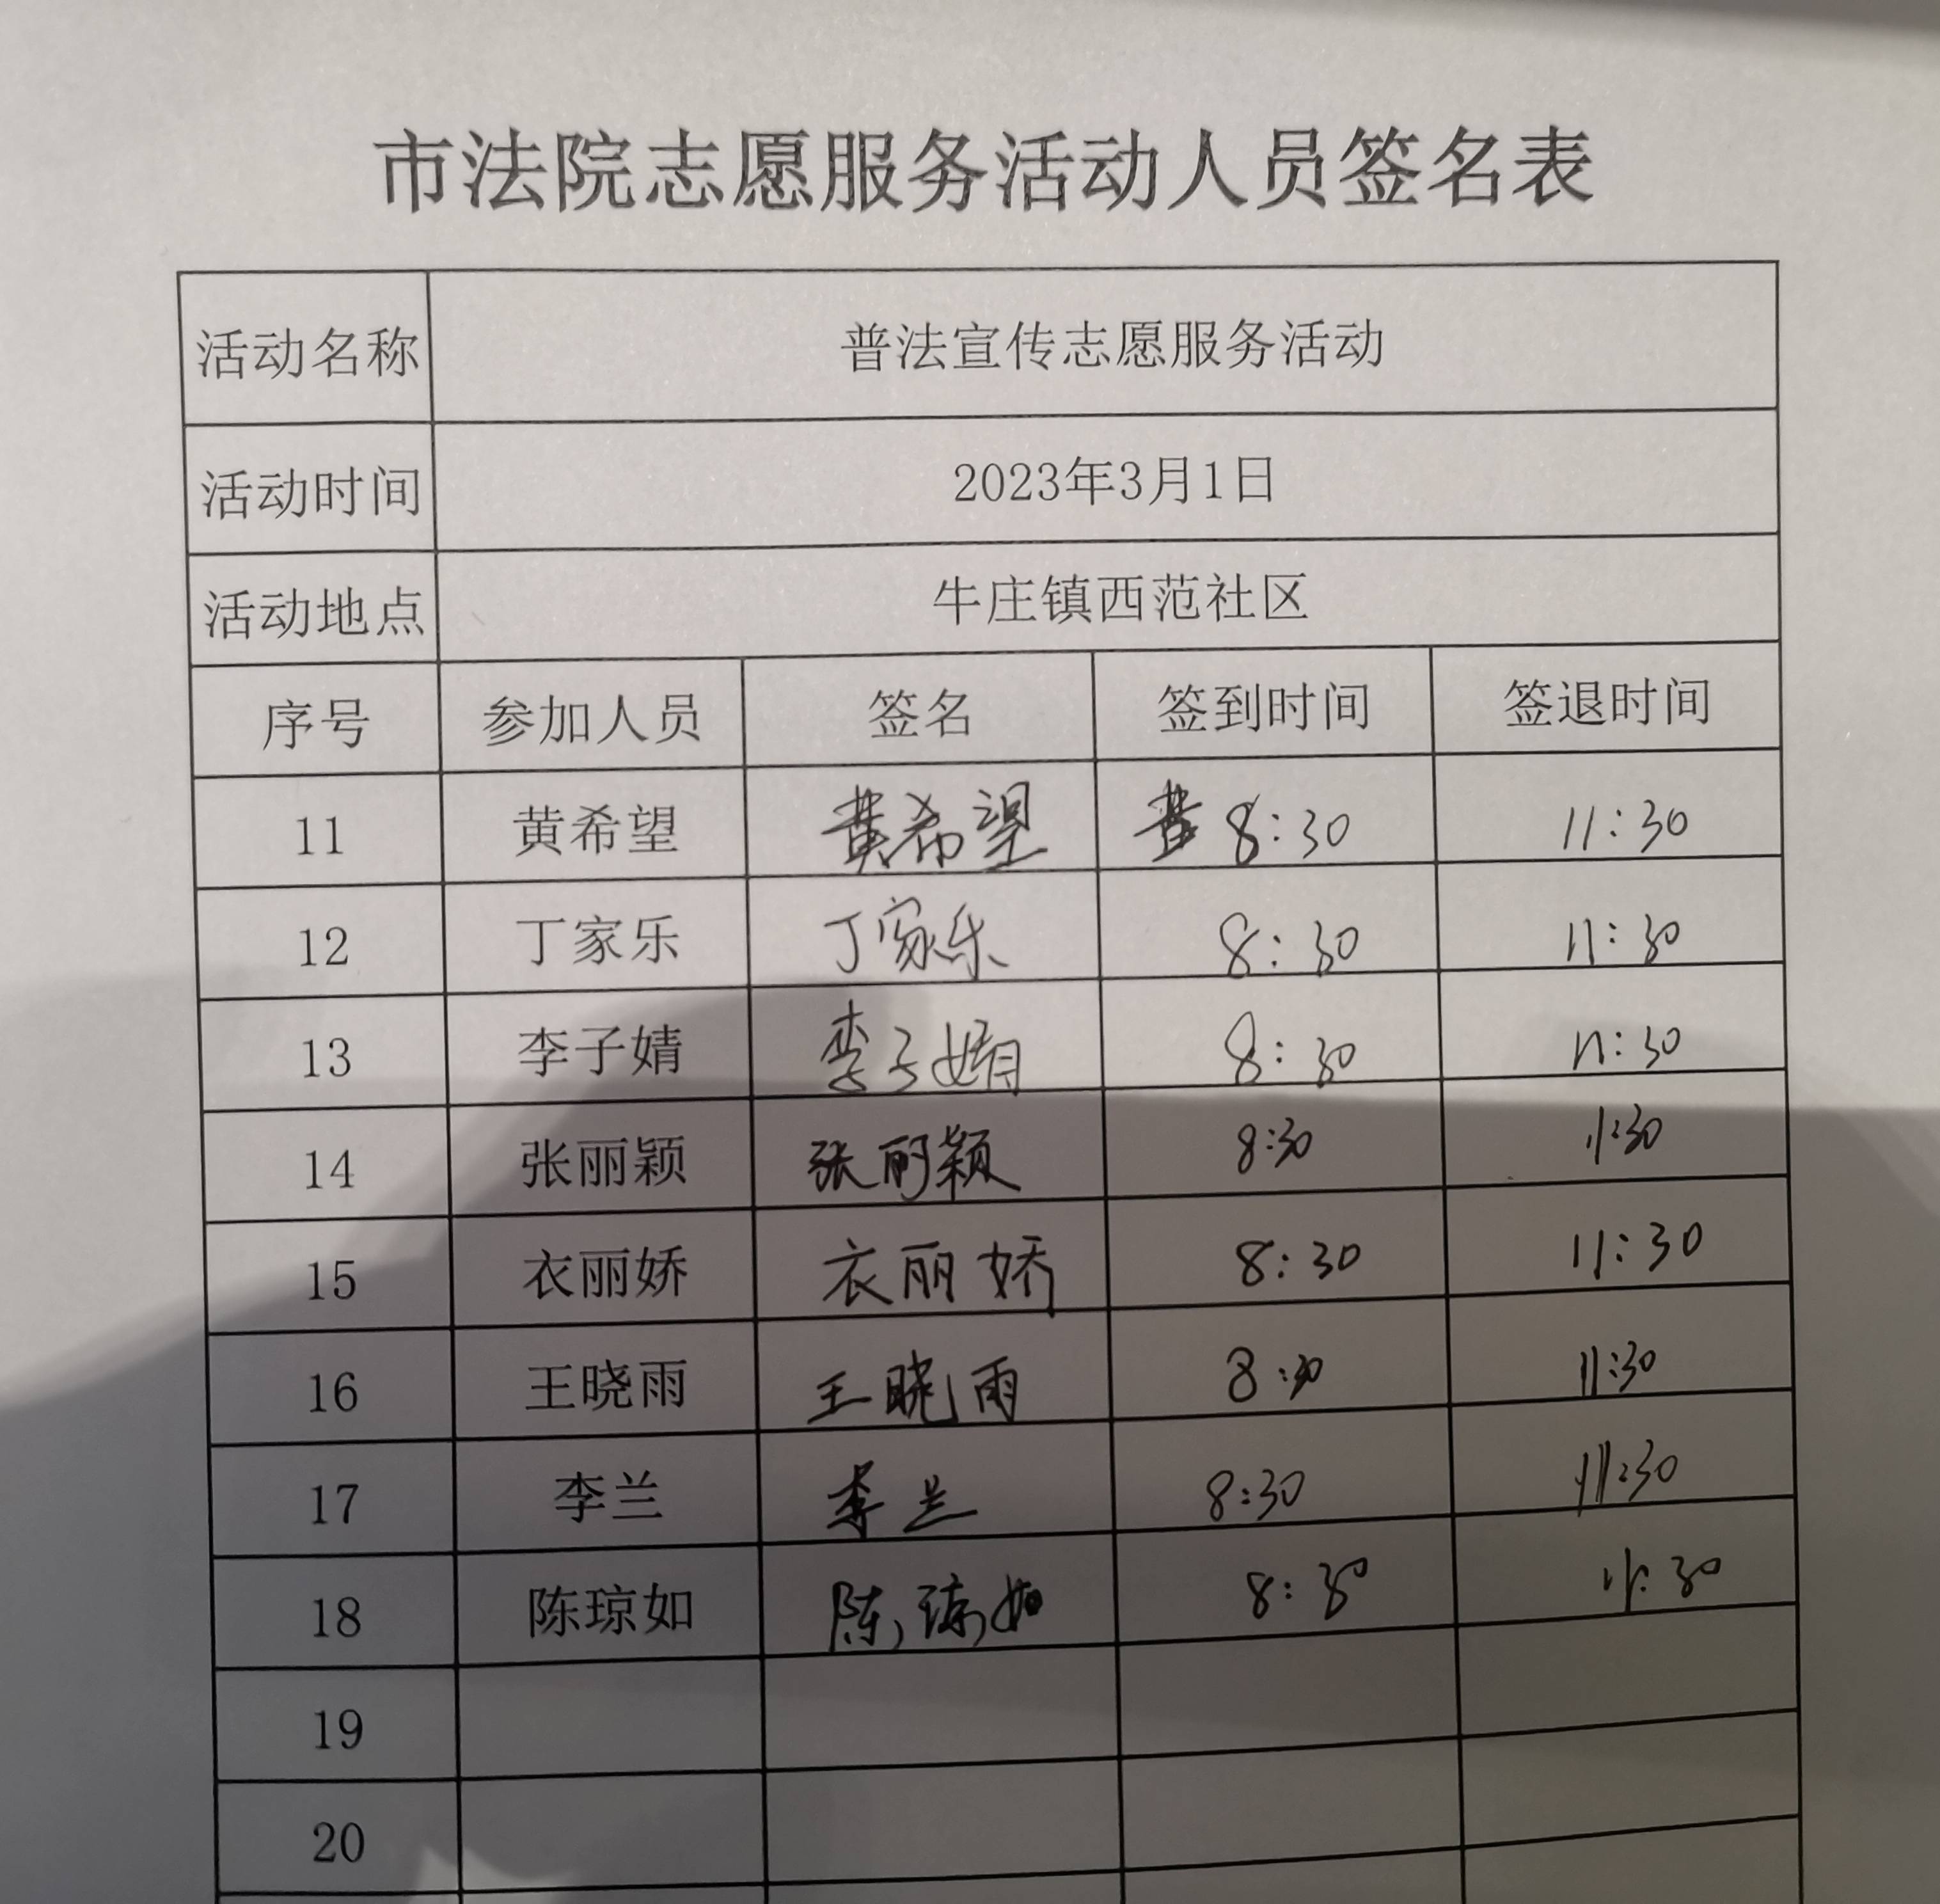 市法院志愿服务活动人员签名表
活动名称 普法宣传志愿服务活动
活动时间 2023年3月1日
活动地点 牛庄镇西范社区
序号 参加人员 签名 签到时间 签退时间
11 黄希望 黄希望 8:30 11:30
12 丁家乐 丁家乐 8:30 11:30
13 李子婧 李子婧 8:30 11:30
14 张丽颖 张丽颖 8:30 11:30
15 衣丽娇 衣丽娇 8:30 11:30
16 王晓雨 王晓雨 8:30 11:30
17 李兰 李兰 8:30 11:30
18 陈琼如 陈琼如 8:30 11:30
19
20